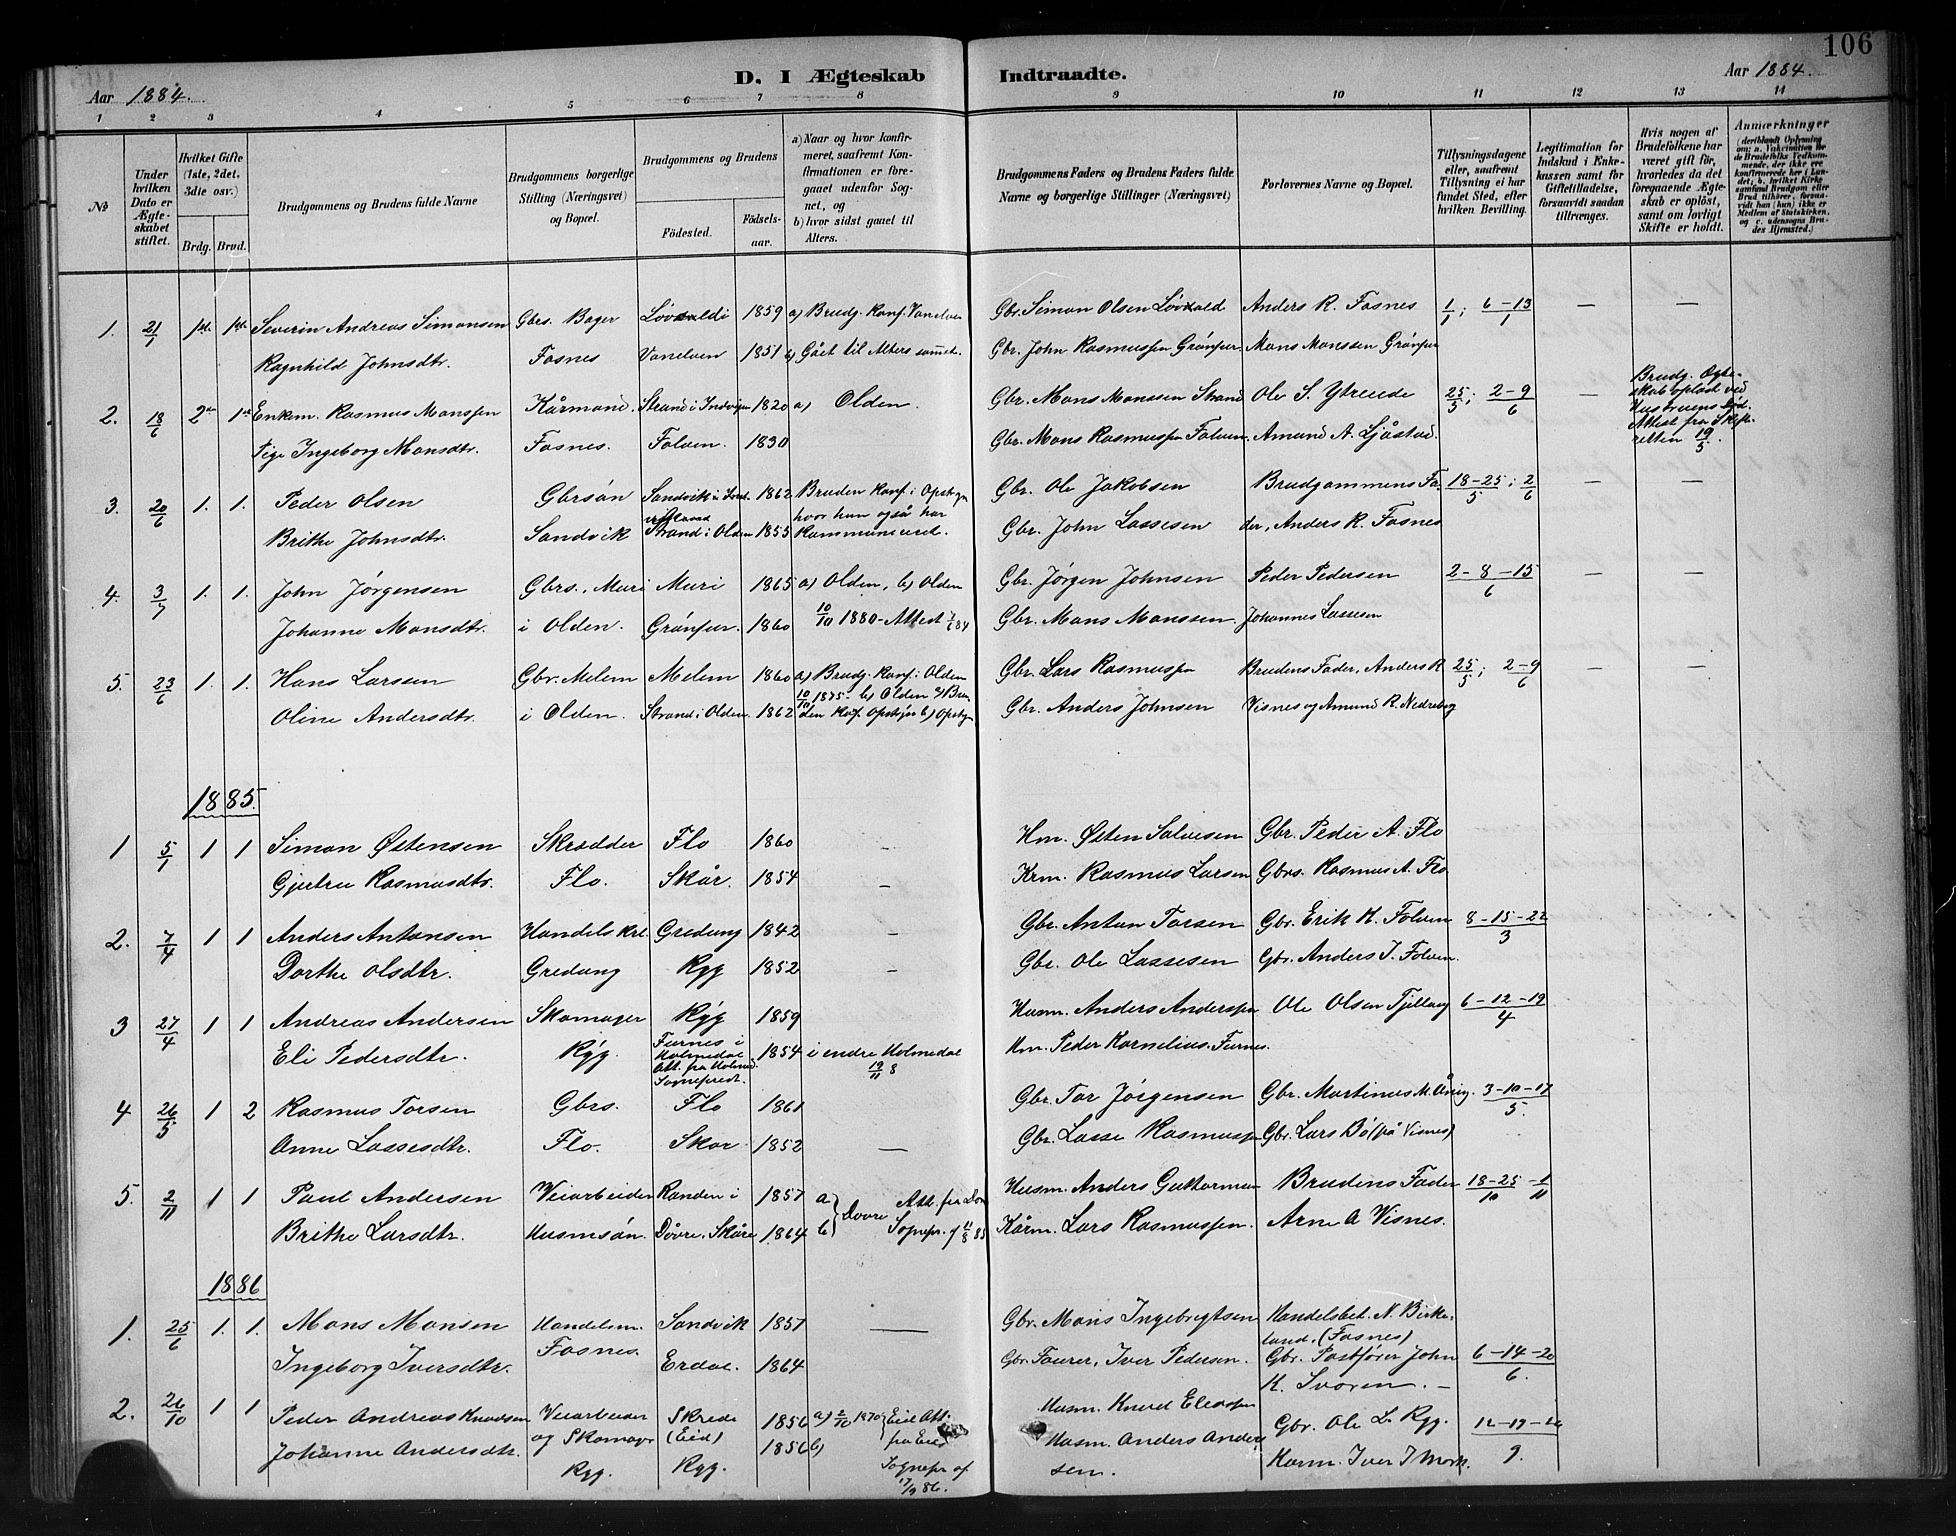 106
D. I Ægteskab Indtraadte.
Aar 1884. Aar 1884.
1 2 3 4 5 6 7 8 9 10 11 12 13 14
No
Under hvilken Dato er Ægteskabet stiftet.
Hvilket Gifte (1ste, 2det, 3die osv.)
Brdg. Brud.
Brudgommens og Brudens fulde Navne
Brudgommens borgerlige Stilling (Næringsvei) og Bopæl.
Brudgommens og Brudens
Födested. Födselsaar.
a) Naar og hvor konfirmeret, saafremt Konfirmationen er foregaaet udenfor Sognet, og
b) hvor sidst gaaet til Alters.
Brudgommens Faders og Brudens Faders fulde Navne og borgerlige Stillinger (Næringsvei)
Forlovernes Navne og Bopæl.
Tillysningsdagene eller, saafremt Tillysning ei har fundet Sted, efter hvilken Bevilling.
Legitimation for Indskud i Enkekassen samt for Giftetilladelse, forsaavidt saadan tiltrænges.
Hvis nogen af Brudefolkene har været gift för, hvorledes da det foregaaende Ægteskab er oplöst, samt om lovligt Skifte er holdt.
Anmærkninger (deriblandt Oplysning om: a. Vakcination for de Brudefolks Vedkommende, der ikke ere konfirmerede her i Landet; b. hvilket Kirkesamfund Brudgom eller Brud tilhörer, forsaavidt han (hun) ikke er Medlem af Statskirken, og c. udensogns Brudes Hjemsted.)
1. 21/1 1ste 1ste Severin Andreas Simonsen Gbrs. Bager 1859 a) Brudg. Konf. Vanelven Gbr. Simon Olsen Anders R. Fosnes 1/1; 6-13/1 — —
Ragnhild Johnsdtr. Fosnes Vanelven 1851 b) Gået til Alters sammest. Gbr. John Rasmussen Grønfur. Mons Monssen Grønfur
2. 18/6 2den 1ste Enkm. Rasmus Monssen Kårmand. Strand i Indvigen 1820 a) Olden. Gbr. Mons Monssen Strand Ole S. Ytreeide 25/5; 2-9/6 — Brudg. Ægteskab opløst ved Hustruens Død. Attest fra Skifteretten 19/5.
Pige Ingeborg Monsdtr. Fosnes. Folven. 1830 Gbr. Mons Rasmussen Folven. Amund A. Ljåstad.
3. 20/6 1. 1. Peder Olsen Gbrsøn Sandvik i 1862 Bruden Konf. i Opstryn Gbr. Ole Jakobsen Brudgommens Fa- 18-25/5; 2/6 — —
Brithe Johnsdtr. Sandvik Strand i Olden 1855 hvor hun også har Kommuniceret. Gbr. John Lassesen der, Anders R. Fosnes
4. 3/7 1. 1. John Jørgensen Gbrs., Muri Muri 1865 a) Olden, b) Olden Gbr. Jørgen Johnsen Peder Pedersen 2-8-15/6 — —
Johanne Monsdtr. i Olden. Grønfur. 1860 10/10 1880 - Attest 84 Gbr. Mons Monssen Johannes Lassesen
5. 23/6 1. 1. Hans Larssen Gbr. Melem Melem 1860 a) Brudg. Konf. i Olden Gbr. Lars Rasmussen Brudens Fader, Anders R. 25/5; 2-9/6 — —
Oline Andersdtr. i Olden. Strand i Olden. 1862 10/10 1875. b) Olden a) Bruden Konf. Opstryn b) Opstryn Gbr. Anders Johnsen Visnes og Amund R. Nedreberg
1885.
1 5/1 1 1 Simon Østensen Skrædder Flo 1860 — Hm. Østen Salvesen Gbr. Peder A. Flo
Gjertru Rasmusdtr. Flo. Skår. 1854 — Krm. Rasmus Larsen Gbrs. Rasmus A. Flo
2. 7/4 1 1 Anders Antonsen Handelskrl. Gredung 1842 — Gbr. Anton Torsen Gbr. Erik K. Folven 8-15-22/3
Dorthe Olsdtr. Gredung Ryg 1852 — Gbr. Ole Lassesen Gbr. Anders J. Folven.
3 27/4 1 1 Andreas Andersen Skomager Ryg 1859 Husm. Anders Anderssen Ole Olsen Tjellaug 6-12-19/4
Eli Pedersdtr. Ryg. Furnes i Holmedal Att. fra Holmed. Sognepredt. 1854 i endre Holmedal Hm. Peder Kornelius. Furnes.
4 26/5 1 2 Rasmus Torsen Gbrs. Flo 1861 Gbr. Tor Jørgensen Gbr. Martinus M. 3-10-17/5.
Anne Lassesdtr. Flo. Skår 1852 — Gbr. Lasse Rasmussen Gbr. Lars Bø (på Visnes)
5. 2/11 1 1 Paul Andersen Veiarbeider Randen i 1857 a) b) Dovre Att. fra Dov. Sognepr. 85 Husm. Anders Guttormsen Brudens Fader 18-25/10 - 1/11
Brithe Larsdtr. Husmsøn. Dovre. Skåre 1864 Kårm. Lars Rasmussen. Arne A Visnes.
1886
1. 25/6 1. 1. Mons Monsen Handelsm. Sandvik 1857 — Gbr. Mons Ingebrigtsen Handelsbet. N. Birkeland. (Fosnes)
Ingeborg Iversdtr. Fosnes. Erdal. 1864 Gbr. Faurer, Iver Pedersen. Gbr. Postfører John K. Svoren. — 6-14-20/6.
2. 26/10 1 1 Peder Andreas Knudsen Veiarbeider Skrede (Eid) 1856 a) 2/10 1870 Eid Att. fra Eids Sognepr. af 17/9 86. Husm. Knud Eliassen Gbr. Ole L. Ryg. 12-19-26/9.
Johanne Andersdtr. og Skomagr Ryg. Ryg. 1856 b) Husm. Anders Andersen. Karm. Iver J Mork.